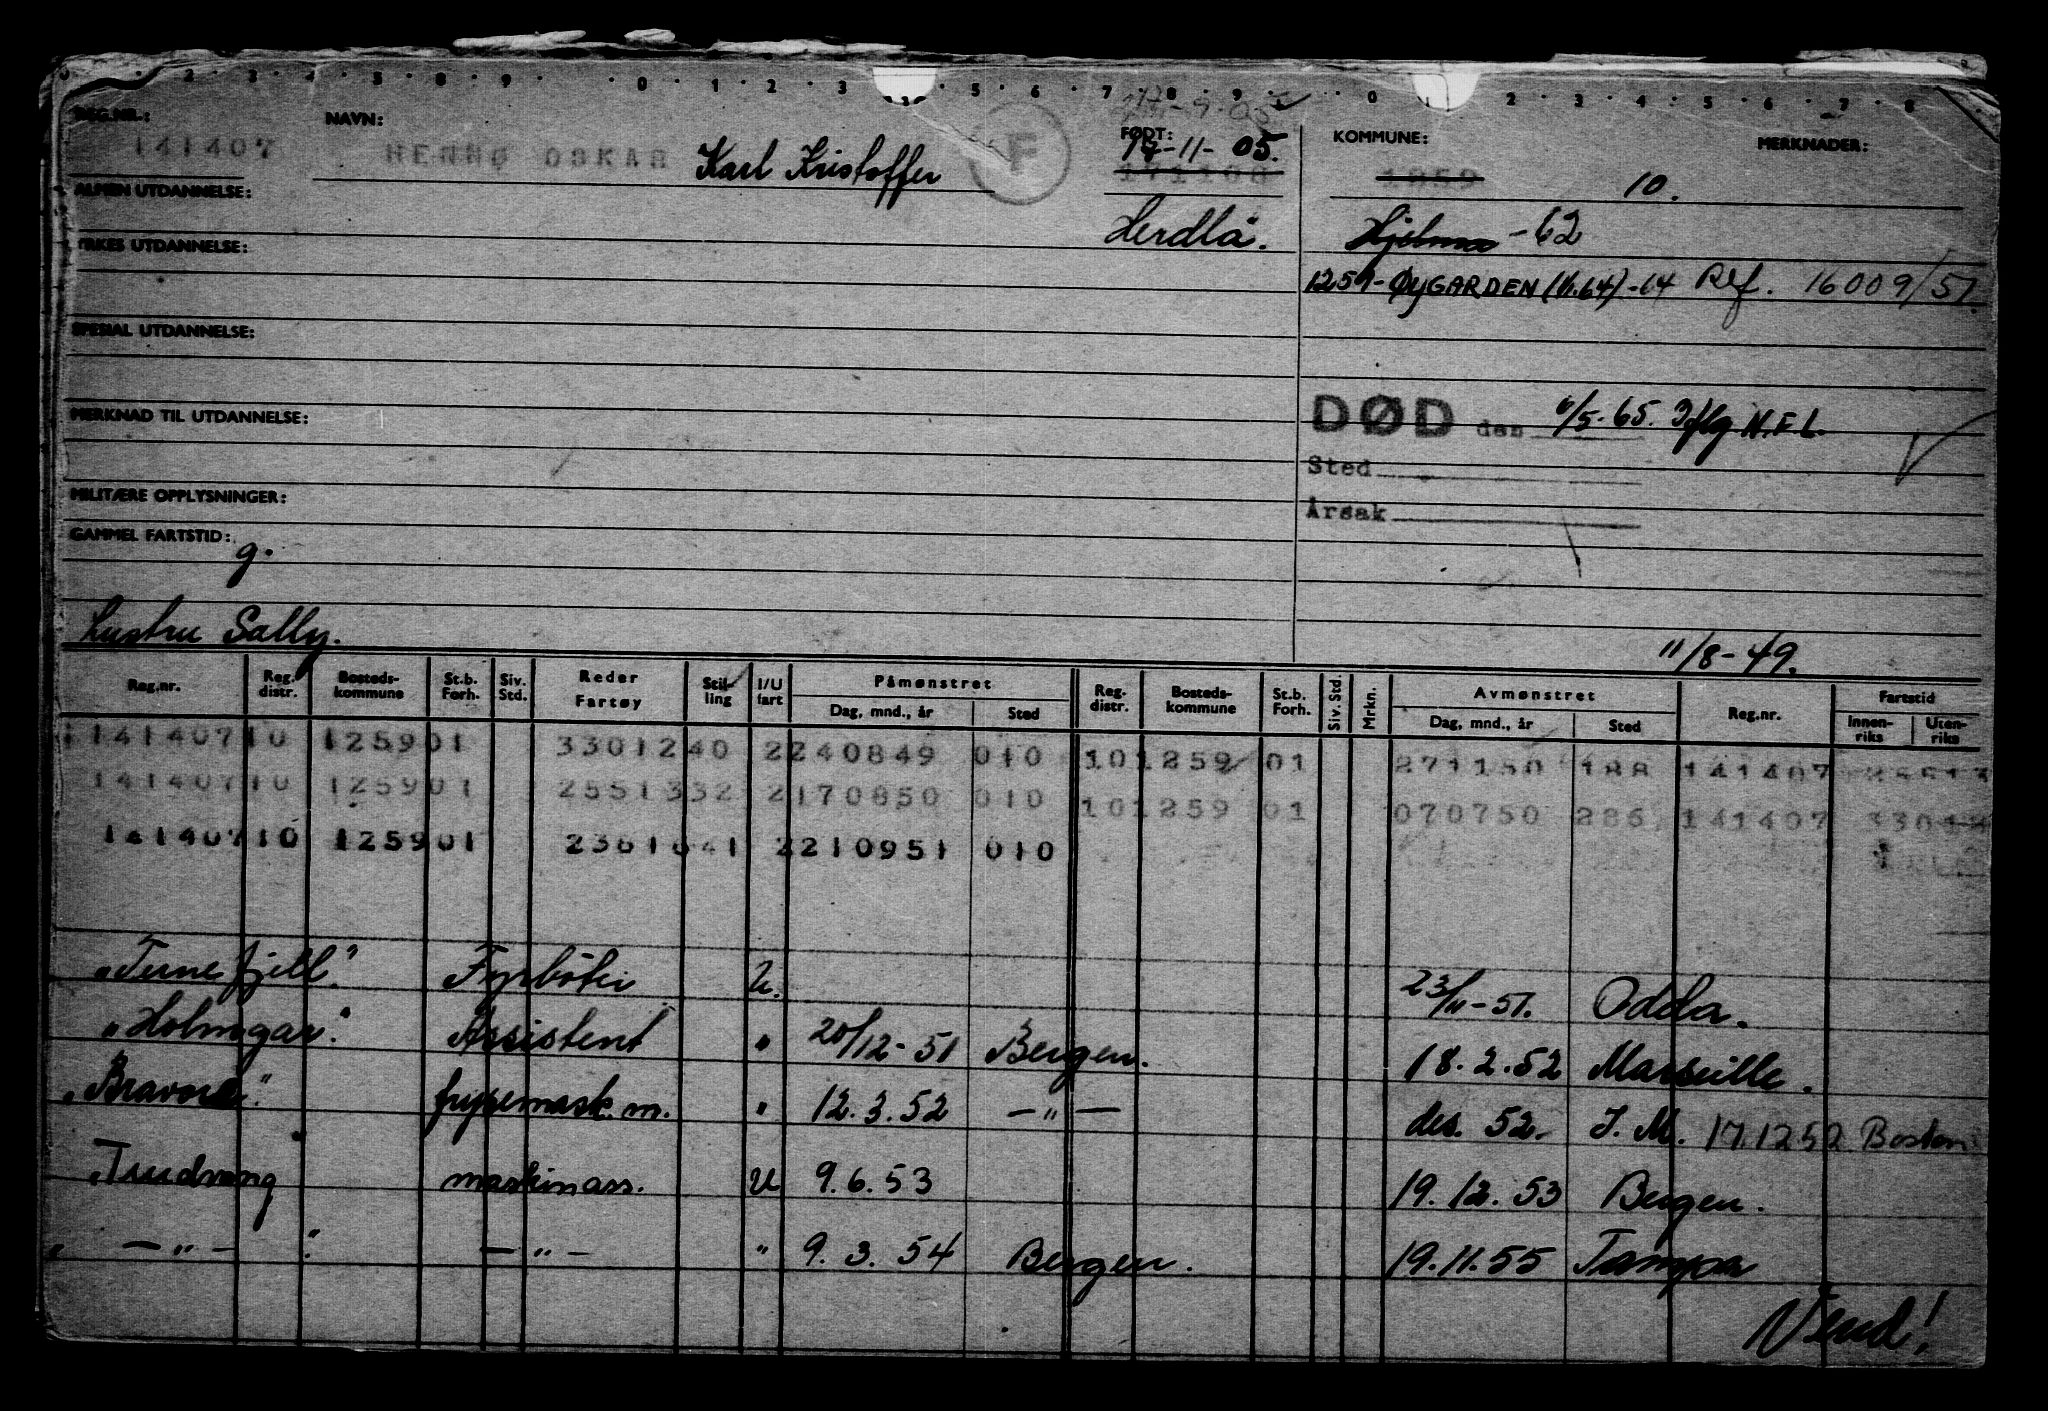 REG.NR.: NAVN: FØDT: KOMMUNE: MERKNADER:
141407 HENNØ OSKAR Karl Kristoffer F 17-11-05. 1259 10.
171108
ALMEN UTDANNELSE: Herdla. Hjelme -62
YRKES UTDANNELSE:
1259-ØYGARDEN (1/1.64)-64 Ref. 16009/51
SPESIAL UTDANNELSE:
MERKNAD TIL UTDANNELSE: DØD den 6/5-65. Iflg N.F.L.
Sted
MILITÆRE OPPLYSNINGER: Årsak
GAMMEL FARTSTID: g.
Hustru Sally. 11/8-49.
Reg.nr. Reg. distr. Bosteds-kommune St.b. Forh. Siv. Std. Reder Fartøy Stil-ling I/U fart Påmønstret Dag, mnd., år Sted Reg. distr. Bosteds-kommune St.b. Forh. Siv. Std. Mrkn. Avmønstret Dag, mnd., år Sted Reg.nr. Fartstid Innen-riks Uten-riks
141407 10 1259 01 3301240 2 240849 010 10 1259 01 271150 188 141407
141407 10 1259 01 2551332 2 170850 010 10 1259 01 070750 286 141407
141407 10 1259 01 2 210951 010
"Ternefjell". Fyrbøter U. 23/11-51. Odda.
"Holmgar". Assistent " 20/12-51 Bergen. 18.2.52 Marseille.
"Bravore". frysemask.m. " 12.3.52 —"— des. 52. I.M. 17.12 52. Boston
"Trudvang maskinass. U 9.6.53 19.12.53 Bergen.
" —"— ". —"— " 9.3.54 Bergen. 19.11.55 Tampa
Vend!